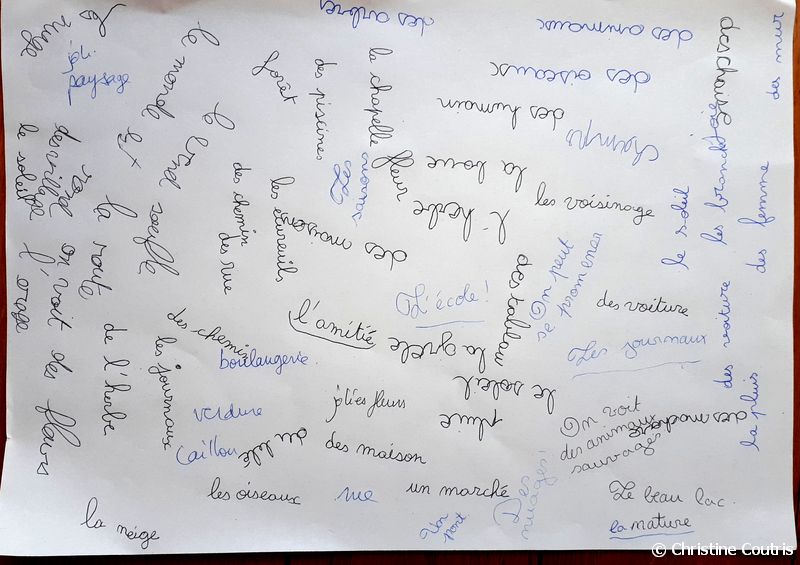 des arbres
des animaux
des oiseaux
des humain
des chaise
des mur
joli
paysage
forêt
des piscines
la chapelle
le monde
champs
la boue
fleur
Les
saisons
l'herbe
les voisinage
le soleil
les branch
des femme
le vend soufle
des chemin
des rue
les écureuils
des maison
la route
on voit des fleurs
le soleil
l'orage
L'école!
On peut
se promener
des voiture
des voiture
l'amitié
la grêle
Les journaux
des chemin
les journaux
de l'herbe
boulangerie.
le soleil
la pluis
verdure
jolies fleurs
pluie
On voit
des animaux
sauvages
caillou
du blé
des maison
les oiseaux
rue
un marché
Des
nuages!
Le beau lac.
la nature
la neige
Un
pont
© Christine Coutris